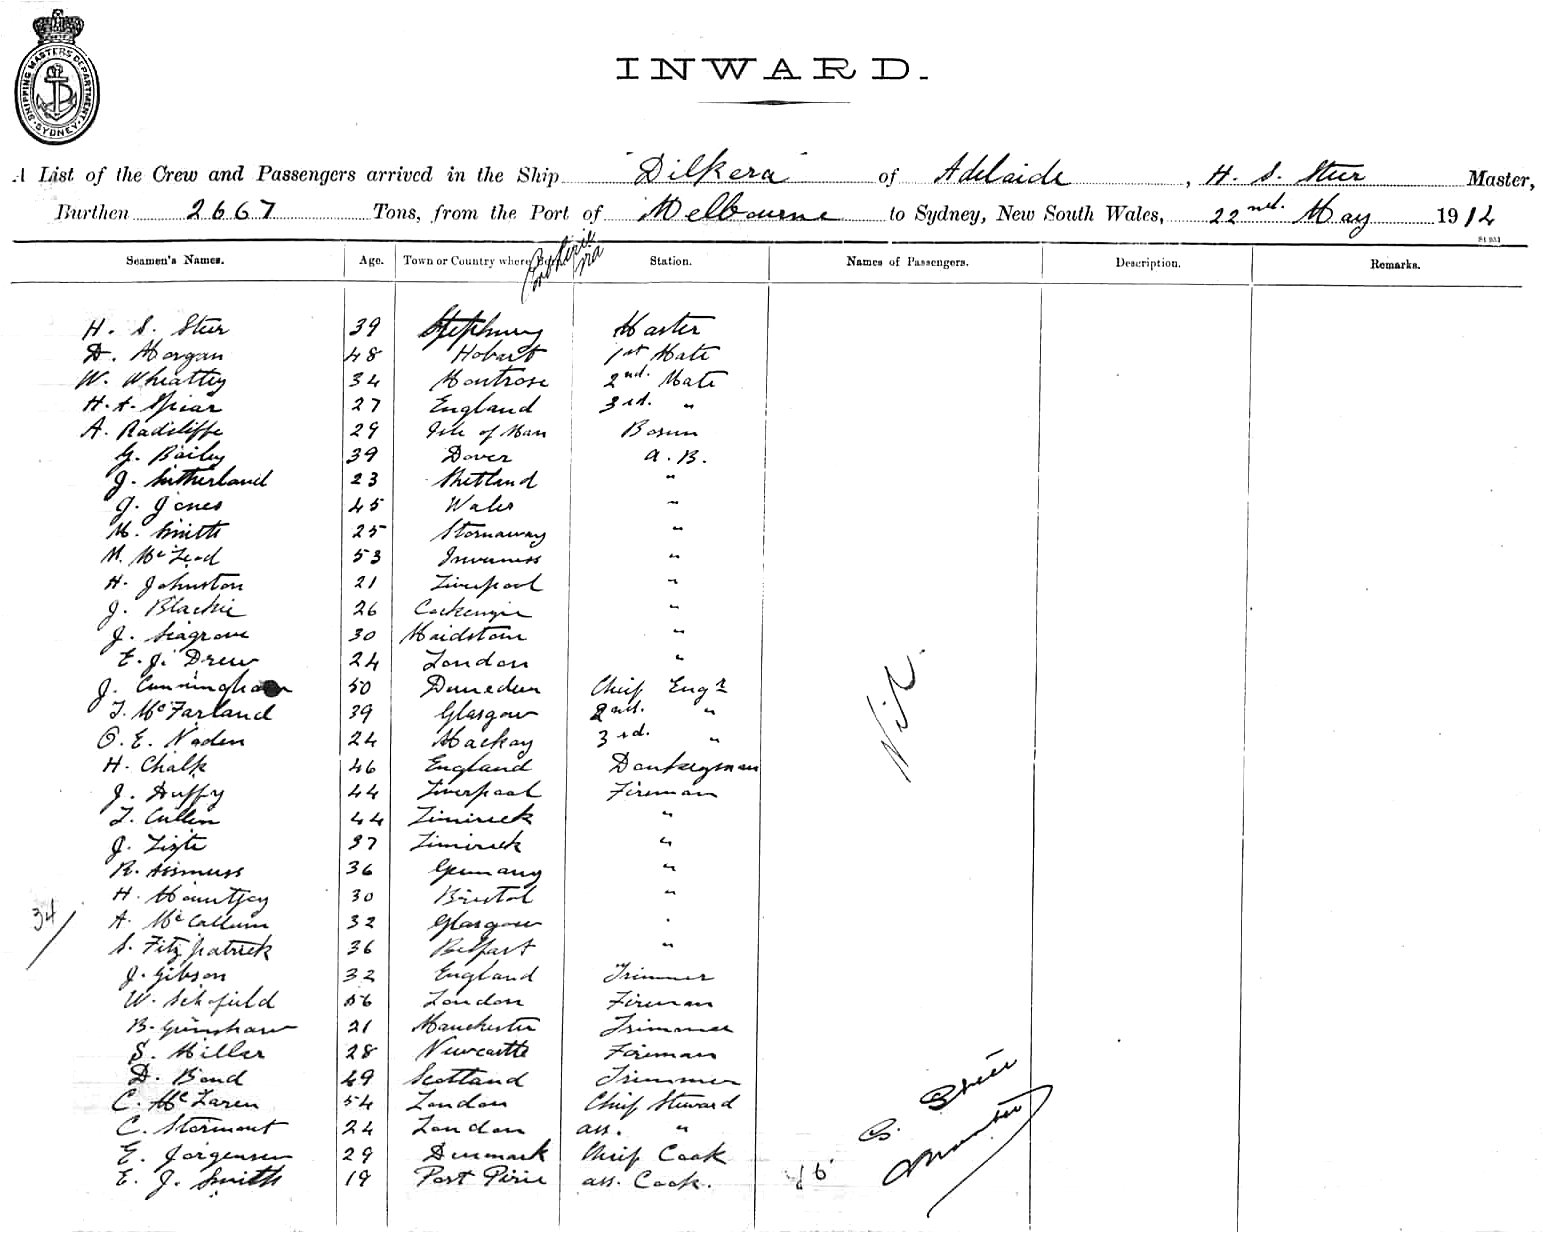 SHIPPING MASTERS DEPARTMENT. SYDNEY.
INWARD.
A List of the Crew and Passengers arrived in the Ship "Dilkera" of Adelaide, H. S. Steer Master,
Burthen 2667 Tons, from the Port of Melbourne to Sydney, New South Wales, 22nd. May 1914
Seamen's Names. Age. Town or Country where Station. Names of Passengers. Description. Remarks.
H. S. Steer 39 Master
D. Morgan 48 Hobart 1st Mate
W. Wheatley 34 Montrose 2nd. Mate
H. A. Spear 27 England 3rd. "
A. Radcliffe 29 Isle of Man Bosun
G. Bailey 39 Dover A. B.
J. Sutherland 23 Shetland "
J. Jones 45 Wales "
M. Smith 25 Stornaway "
M. McLeod 53 Inverness "
H. Johnston 21 Liverpool "
J. Blackie 26 Cockenzie "
J. Seagrove 30 Maidstone "
E. J. Drew 24 London "
J. Cunningham 50 Dunedin Chief Engr
T. McFarland 39 Glasgow 2nd. "
O. E. Naden 24 Mackay 3rd. "
H. Chalk 46 England Donkeyman
J. Duffy 44 Liverpool Fireman
T. Cullen 44 Limirick "
J. 37 Limirick "
R. Asmuss 36 Germany "
H. Mountjoy 30 Bristol "
34/ A. McCallum 32 Glasgow "
S. Fitzpatrick 36 Belfast "
J. Gibson 32 England Trimmer
W. Schofield 56 London Fireman
B. Grimshaw 21 Manchester Trimmer
S. Miller 28 Newcastle Fireman
D. Bond 49 Scotland Trimmer
C. McLaren 54 London Chief Steward
C. Stormont 24 London ass. "
E. Jorgensen 29 Denmark Chief Cook
E. J. Smith 19 Port Pirie ass. Cook.
Nil.
Steer
Master